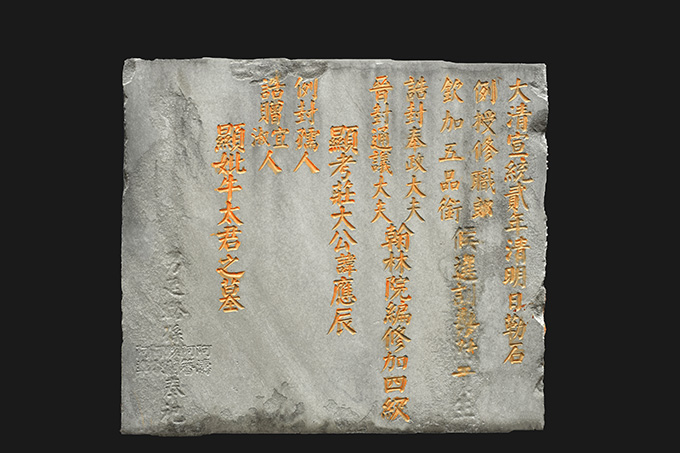 大清宣統貳年清明月勒石
例授修職郎
欽加五品銜候選訓導
誥封奉政大夫
晉封通議大夫翰林院編修加四級
顯考莊大公諱應辰
例封孺人
誥贈宜淑人
顯妣牛太君之墓
孫奉祀